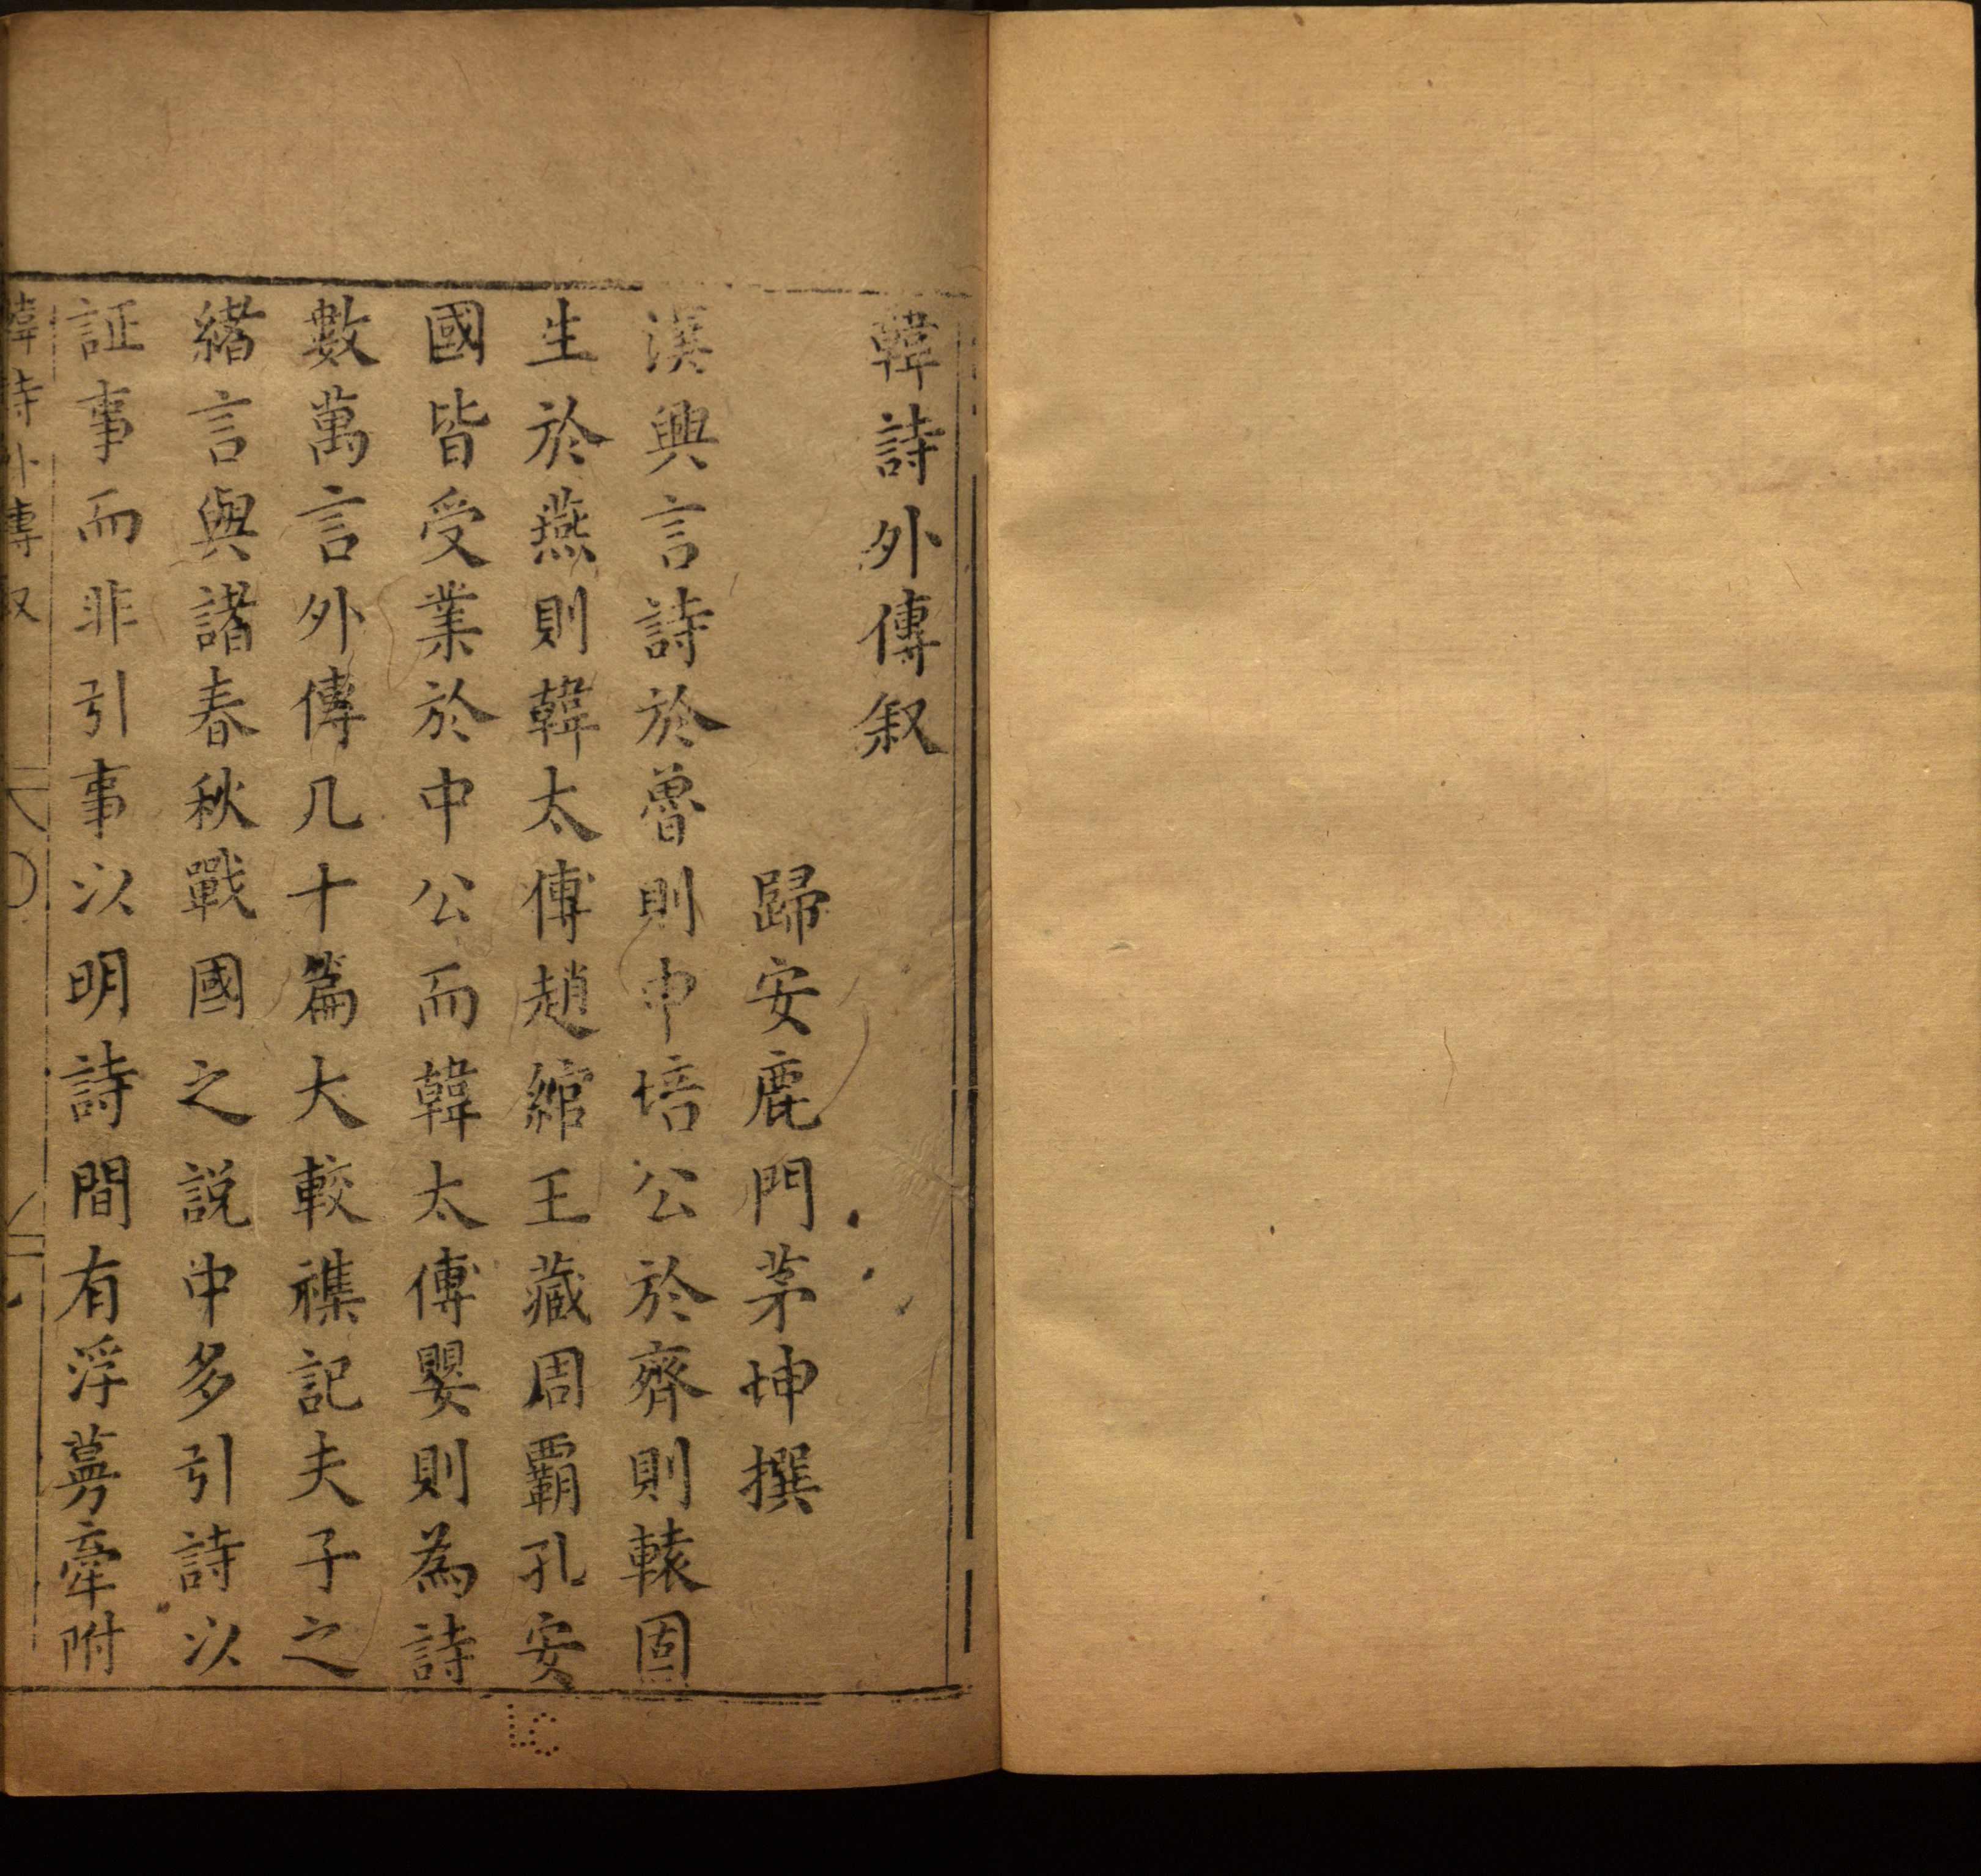 韓詩外傳叙
歸安鹿門茅坤撰
漢興言詩於魯則申培公於齊則轅固
生於燕則韓太傅趙綰王藏周霸孔安
國皆受業於申公而韓太傅嬰則為詩
數萬言外傳几十篇大較襍記夫子之
緒言與諸春秋戰國之說中多引詩以
証事而非引事以明詩間有浮蔓牽附
韓詩外傳叙